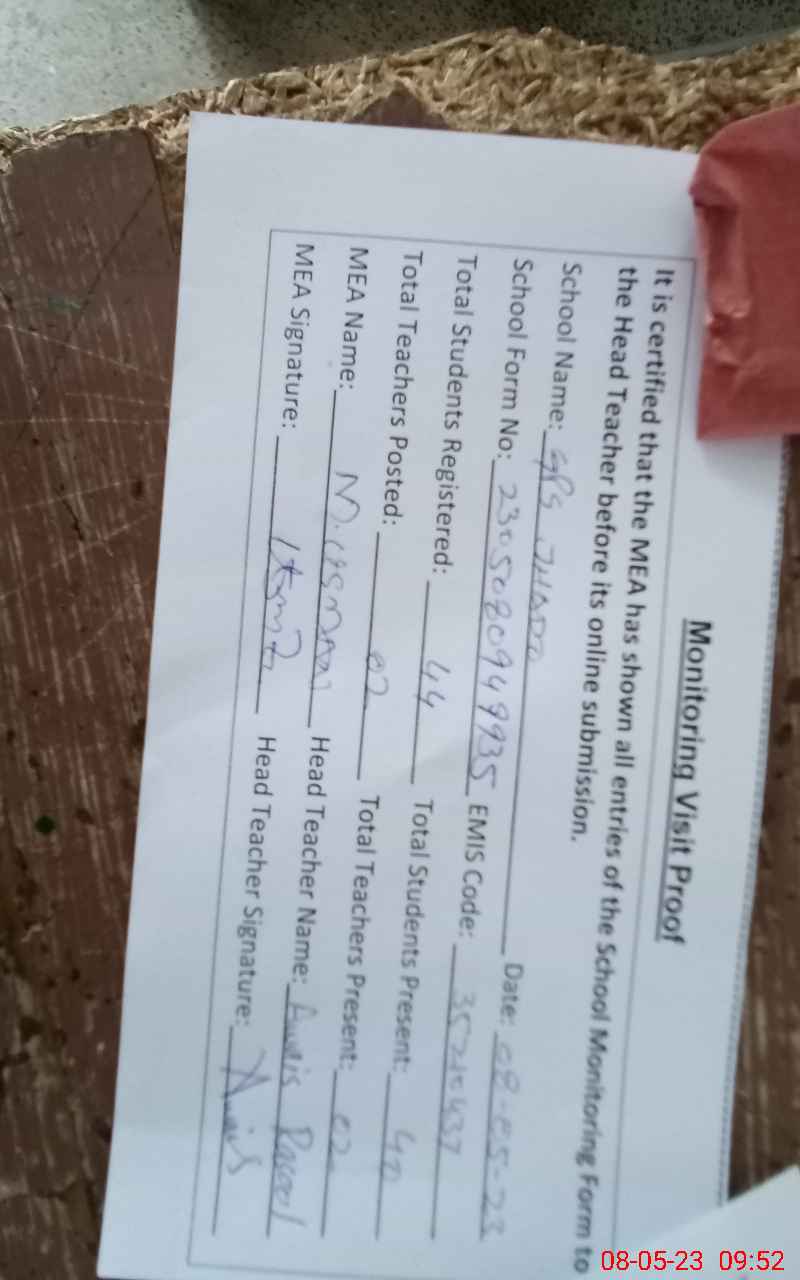 Monitoring Visit Proof
It is certified that the MEA has shown all entries of the School Monitoring Form to
the Head Teacher before its online submission.
School Name: GPS JHADA Date: 08-05-23
School Form No: 230508094935 EMIS Code: 35210437
Total Students Registered: 44 Total Students Present: 40
Total Teachers Posted: 02 Total Teachers Present: 02
MEA Name: M. Head Teacher Name: Awais Rasool
MEA Signature: Head Teacher Signature: Awais
08-05-23 09:52